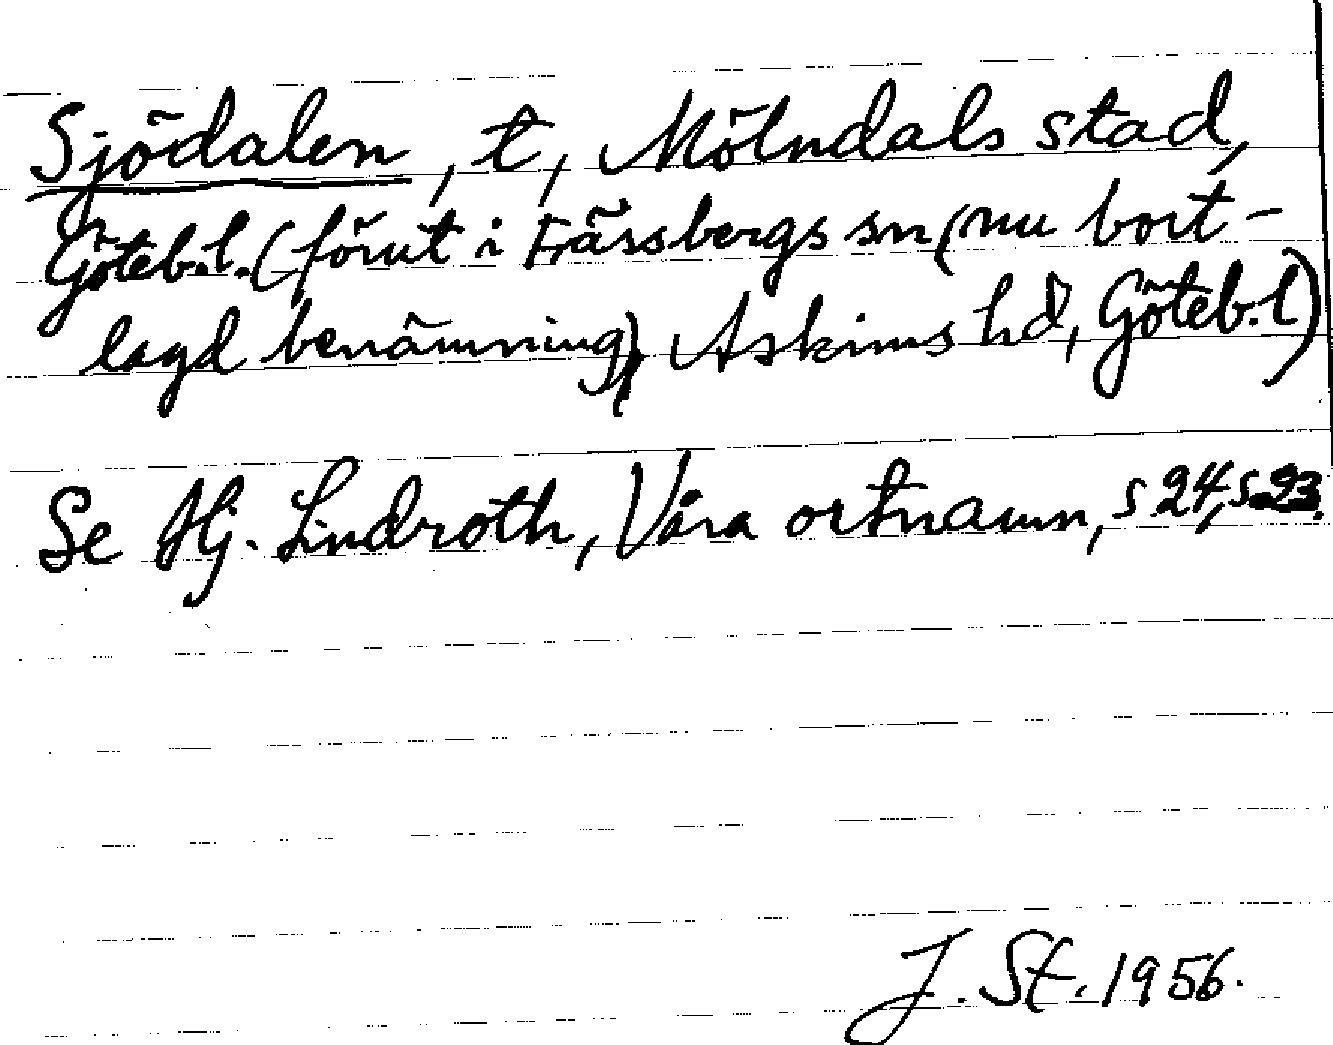 Sjödalen, t, Mölndals stad,
Göteb.l. (förut i Fässbergs sn (nu bort-
lagd benämning), Askims hd, Göteb.l)
Se Hj. Lindroth, Våra ortnamn, s 24, s 23.
J. St. 1956.